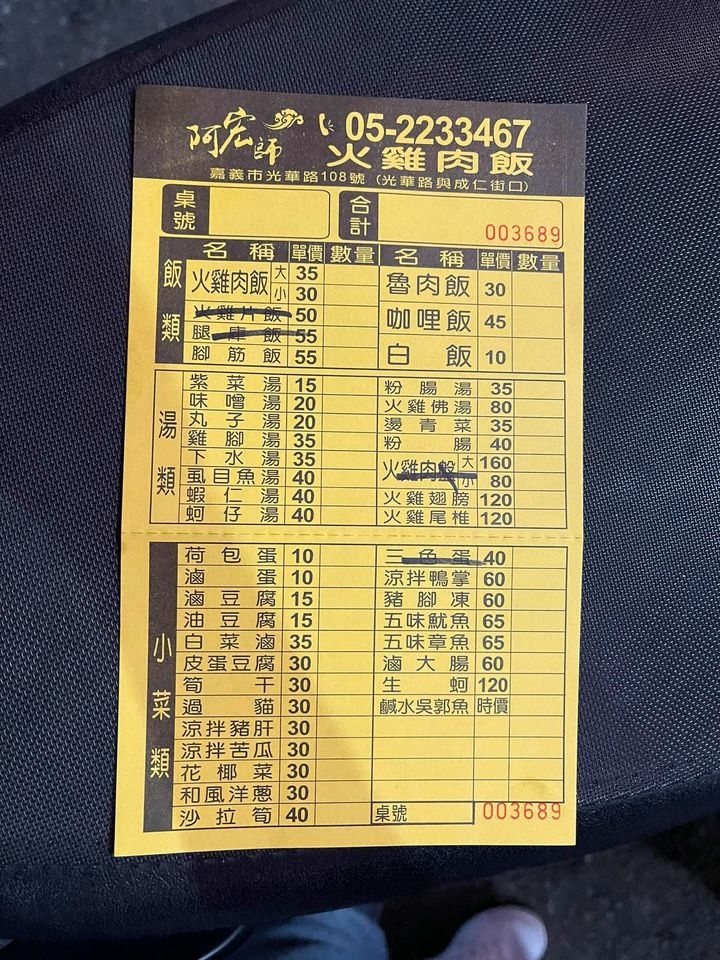 阿宏師 05-2233467
火雞肉飯
嘉義市光華路108號 (光華路與成仁街口)
桌號 合計 003689
飯類
名稱 單價 數量
火雞肉飯 大 35
小 30
火雞片飯 50
腿庫飯 55
腳筋飯 55
名稱 單價 數量
魯肉飯 30
咖哩飯 45
白飯 10
湯類
紫菜湯 15
味噌湯 20
丸子湯 20
雞腳湯 35
下水湯 35
虱目魚湯 40
蝦仁湯 40
蚵仔湯 40
粉腸湯 35
火雞佛湯 80
燙青菜 35
粉腸 40
火雞肉盤 大 160
小 80
火雞翅膀 120
火雞尾椎 120
小菜類
荷包蛋 10
滷蛋 10
滷豆腐 15
油豆腐 15
白菜滷 35
皮蛋豆腐 30
筍干 30
過貓 30
涼拌豬肝 30
涼拌苦瓜 30
花椰菜 30
和風洋蔥 30
沙拉筍 40
三色蛋 40
涼拌鴨掌 60
豬腳凍 60
五味魷魚 65
五味章魚 65
滷大腸 60
生蚵 120
鹹水吳郭魚 時價
桌號 003689